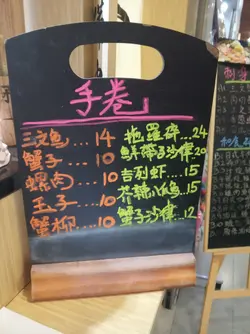 手卷
三文魚...14
蟹子...10
螺肉...10
玉子...10
蟹柳...10
拖羅碎...24
鮮帶子沙律...20
吉列虾...15
芥辣八爪魚...15
蟹子沙律...12
刺